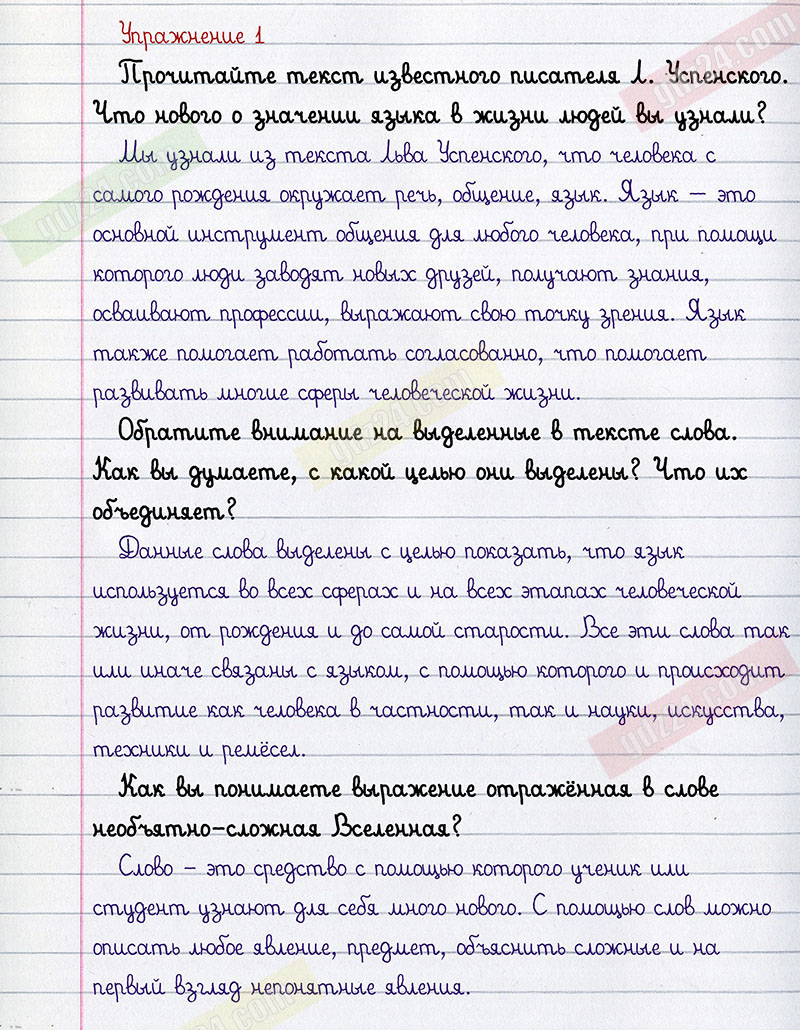 Упражнение 1
Прочитайте текст известного писателя Л. Успенского.
Что нового о значении языка в жизни людей вы узнали?
Мы узнали из текста Льва Успенского, что человека с
самого рождения окружает речь, общение, язык. Язык – это
основной инструмент общения для любого человека, при помощи
которого люди заводят новых друзей, получают знания,
осваивают профессии, выражают свою точку зрения. Язык
также помогает работать согласованно, что помогает
развивать многие сферы человеческой жизни.
Обратите внимание на выделенные в тексте слова.
Как вы думаете, с какой целью они выделены? Что их
объединяет?
Данные слова выделены с целью показать, что язык
используется во всех сферах и на всех этапах человеческой
жизни, от рождения и до самой старости. Все эти слова так
или иначе связаны с языком, с помощью которого и происходит
развитие как человека в частности, так и науки, искусства,
техники и ремёсел.
Как вы понимаете выражение отражённая в слове
необъятно-сложная Вселенная?
Слово – это средство с помощью которого ученик или
студент узнают для себя много нового. С помощью слов можно
описать любое явление, предмет, объяснить сложные и на
первый взгляд непонятные явления.
gdz24.com
gdz24.com
gdz24.com
gdz24.com
gdz24.com